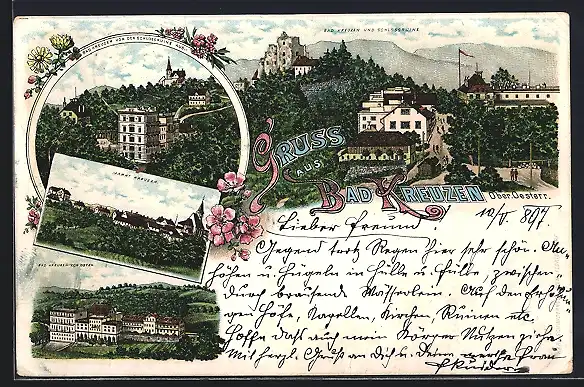 BAD KREUZEN VON DER SCHLOSSRUINE AUS
BAD KREUZEN UND SCHLOSSRUINE
MARKT KREUZEN
BAD KREUZEN VON
GRUSS
AUS
BAD KREUZEN
Ober.Oesterr.
10/V. 897
Lieber Freund!
Gegend trotz Regen hier sehr schön. An-
höhen u. Hügeln in Hülle u. Fülle, zwischen-
durch brausende Wässerlein. Auf den
Höfe, Kapellen, Kirchen, Ruinen etc.
Hoffe daß auch mein Körper Nutzen ziehe.
Mit herzl. Gruß an Dich u. Deine werthe Frau